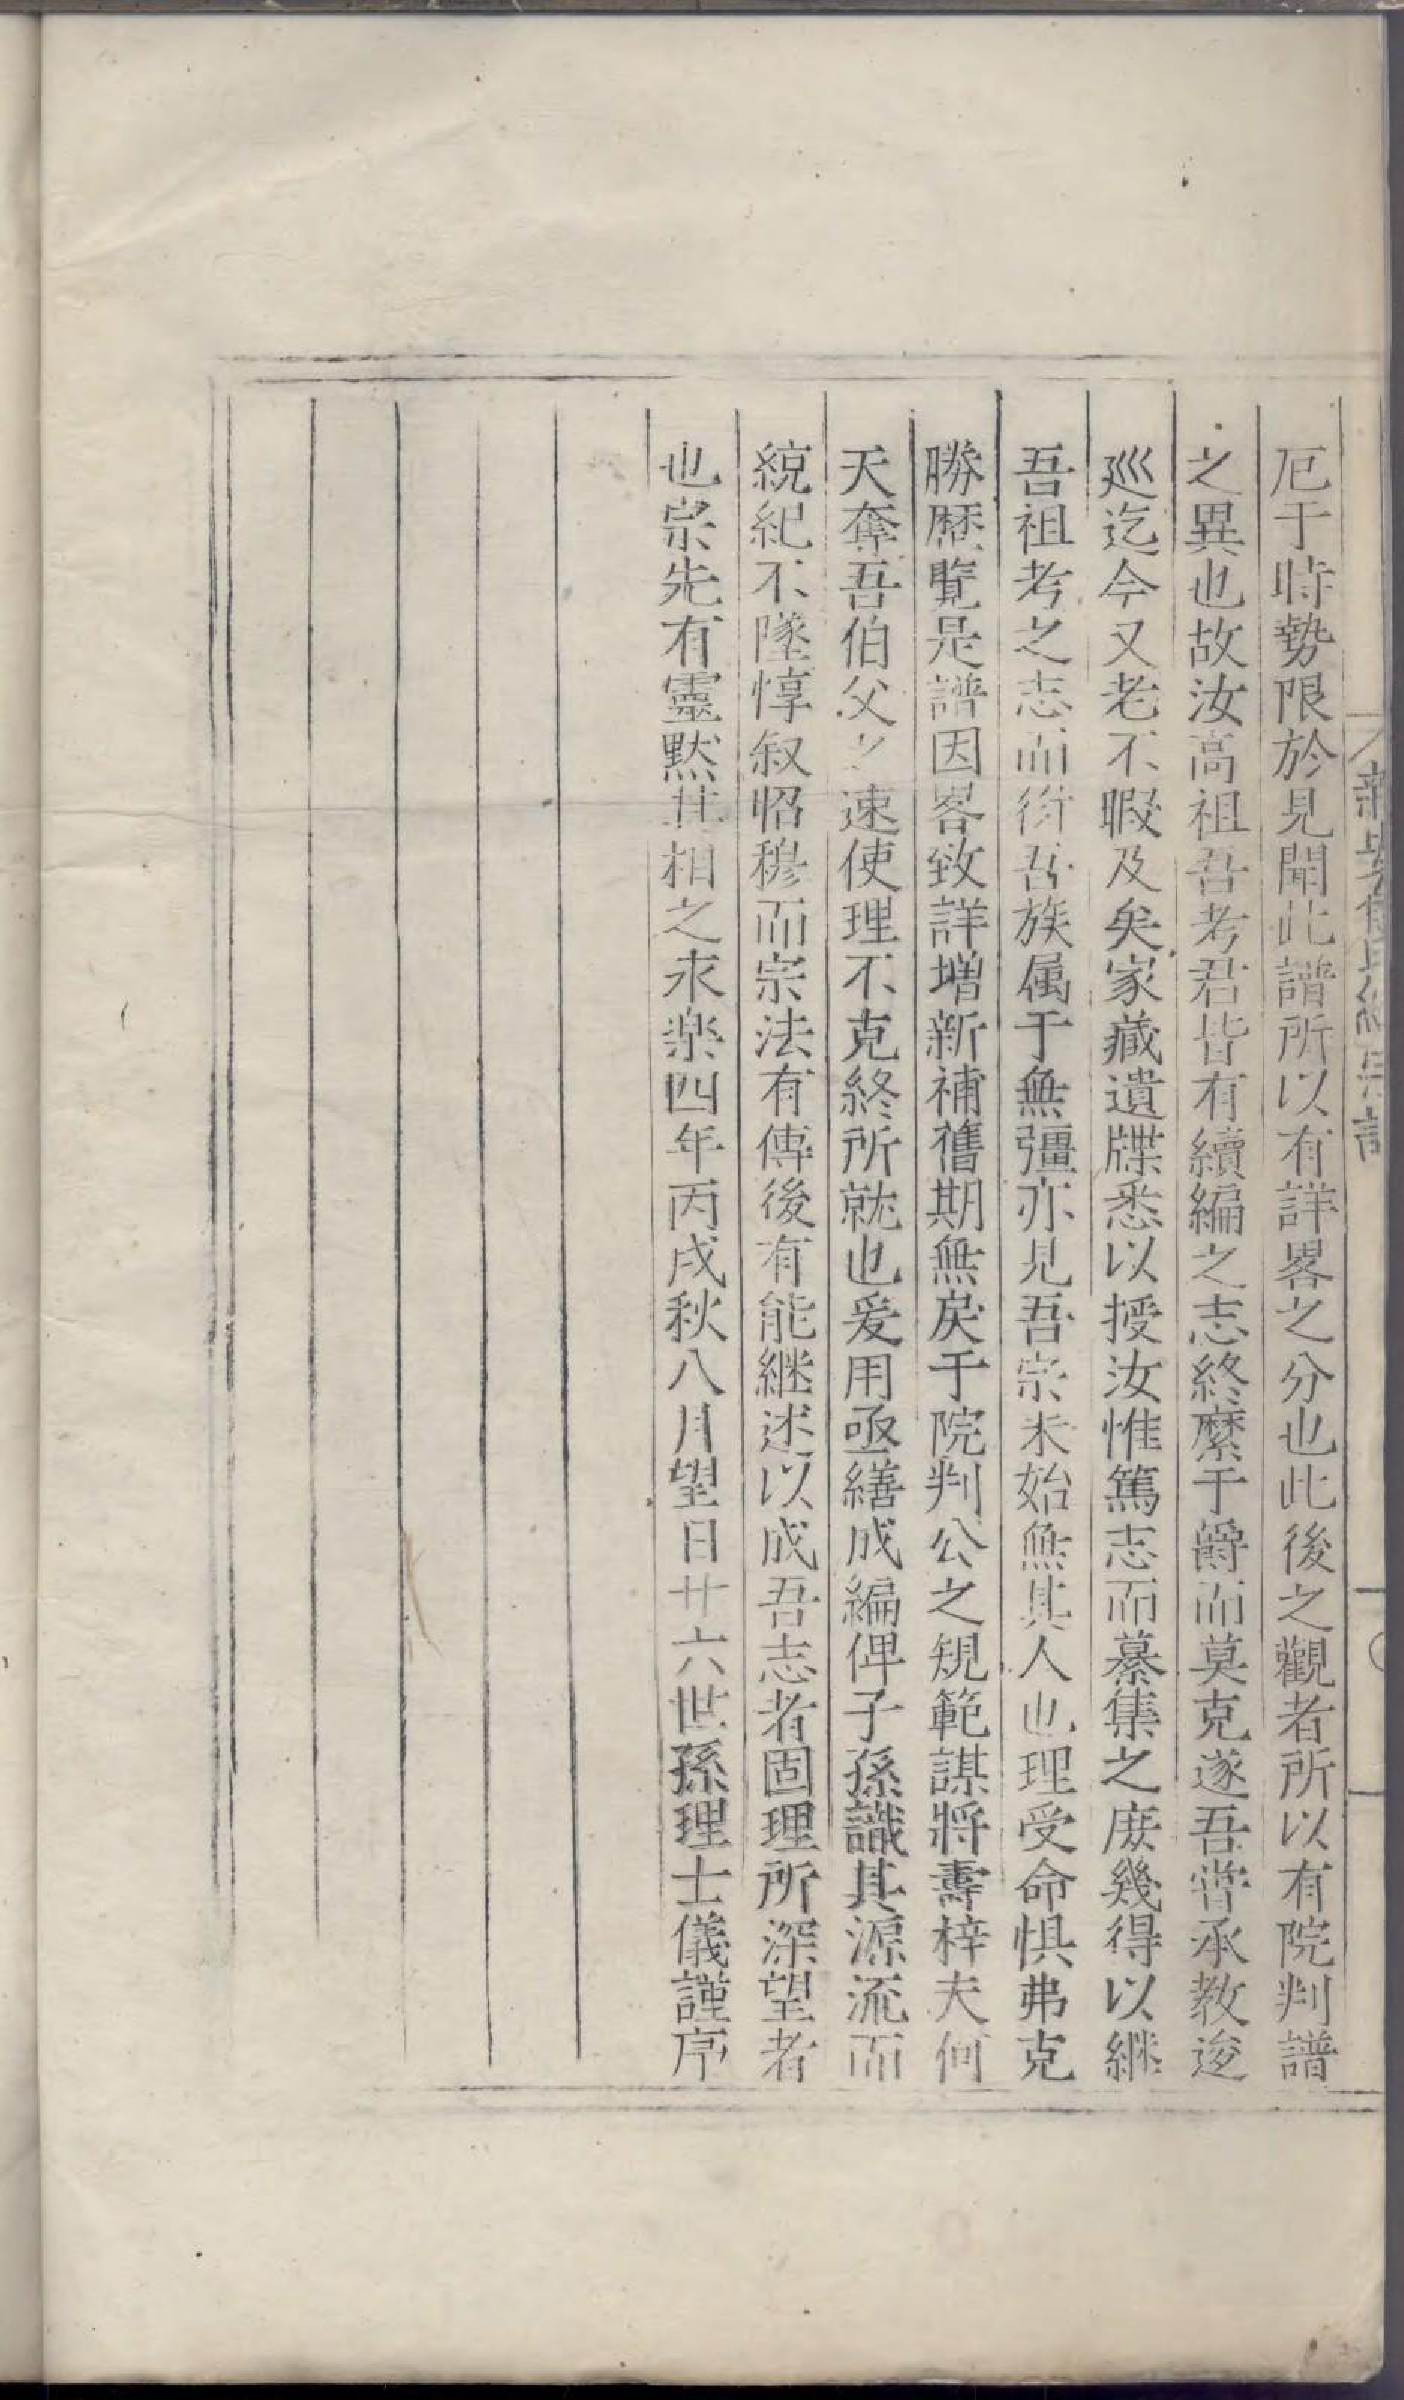 厄于時勢限於見聞此譜所以有詳畧之分也此後之觀者所以有院判譜
之異也故汝高祖吾考君皆有續編之志終縻于爵而莫克遂吾嘗承教逡
巡迄今又老不暇及矣家藏遺牒悉以授汝惟篤志而纂集之庶幾得以継
吾祖考之志而衍吾族属于無彊亦見吾宗未始無其人也理受命惧弗克
勝歷覽是譜因畧致詳增新補舊期無戾于院判公之規範謀將壽梓夫何
天奪吾伯父之速使理不克終所就也爰用亟繕成編俾子孫識其源流而
統紀不墜惇叙昭穆而宗法有傳後有能継述以成吾志者固理所深望者
也宗先有靈默其相之永楽四年丙戌秋八月望日廿六世孫理士儀謹序